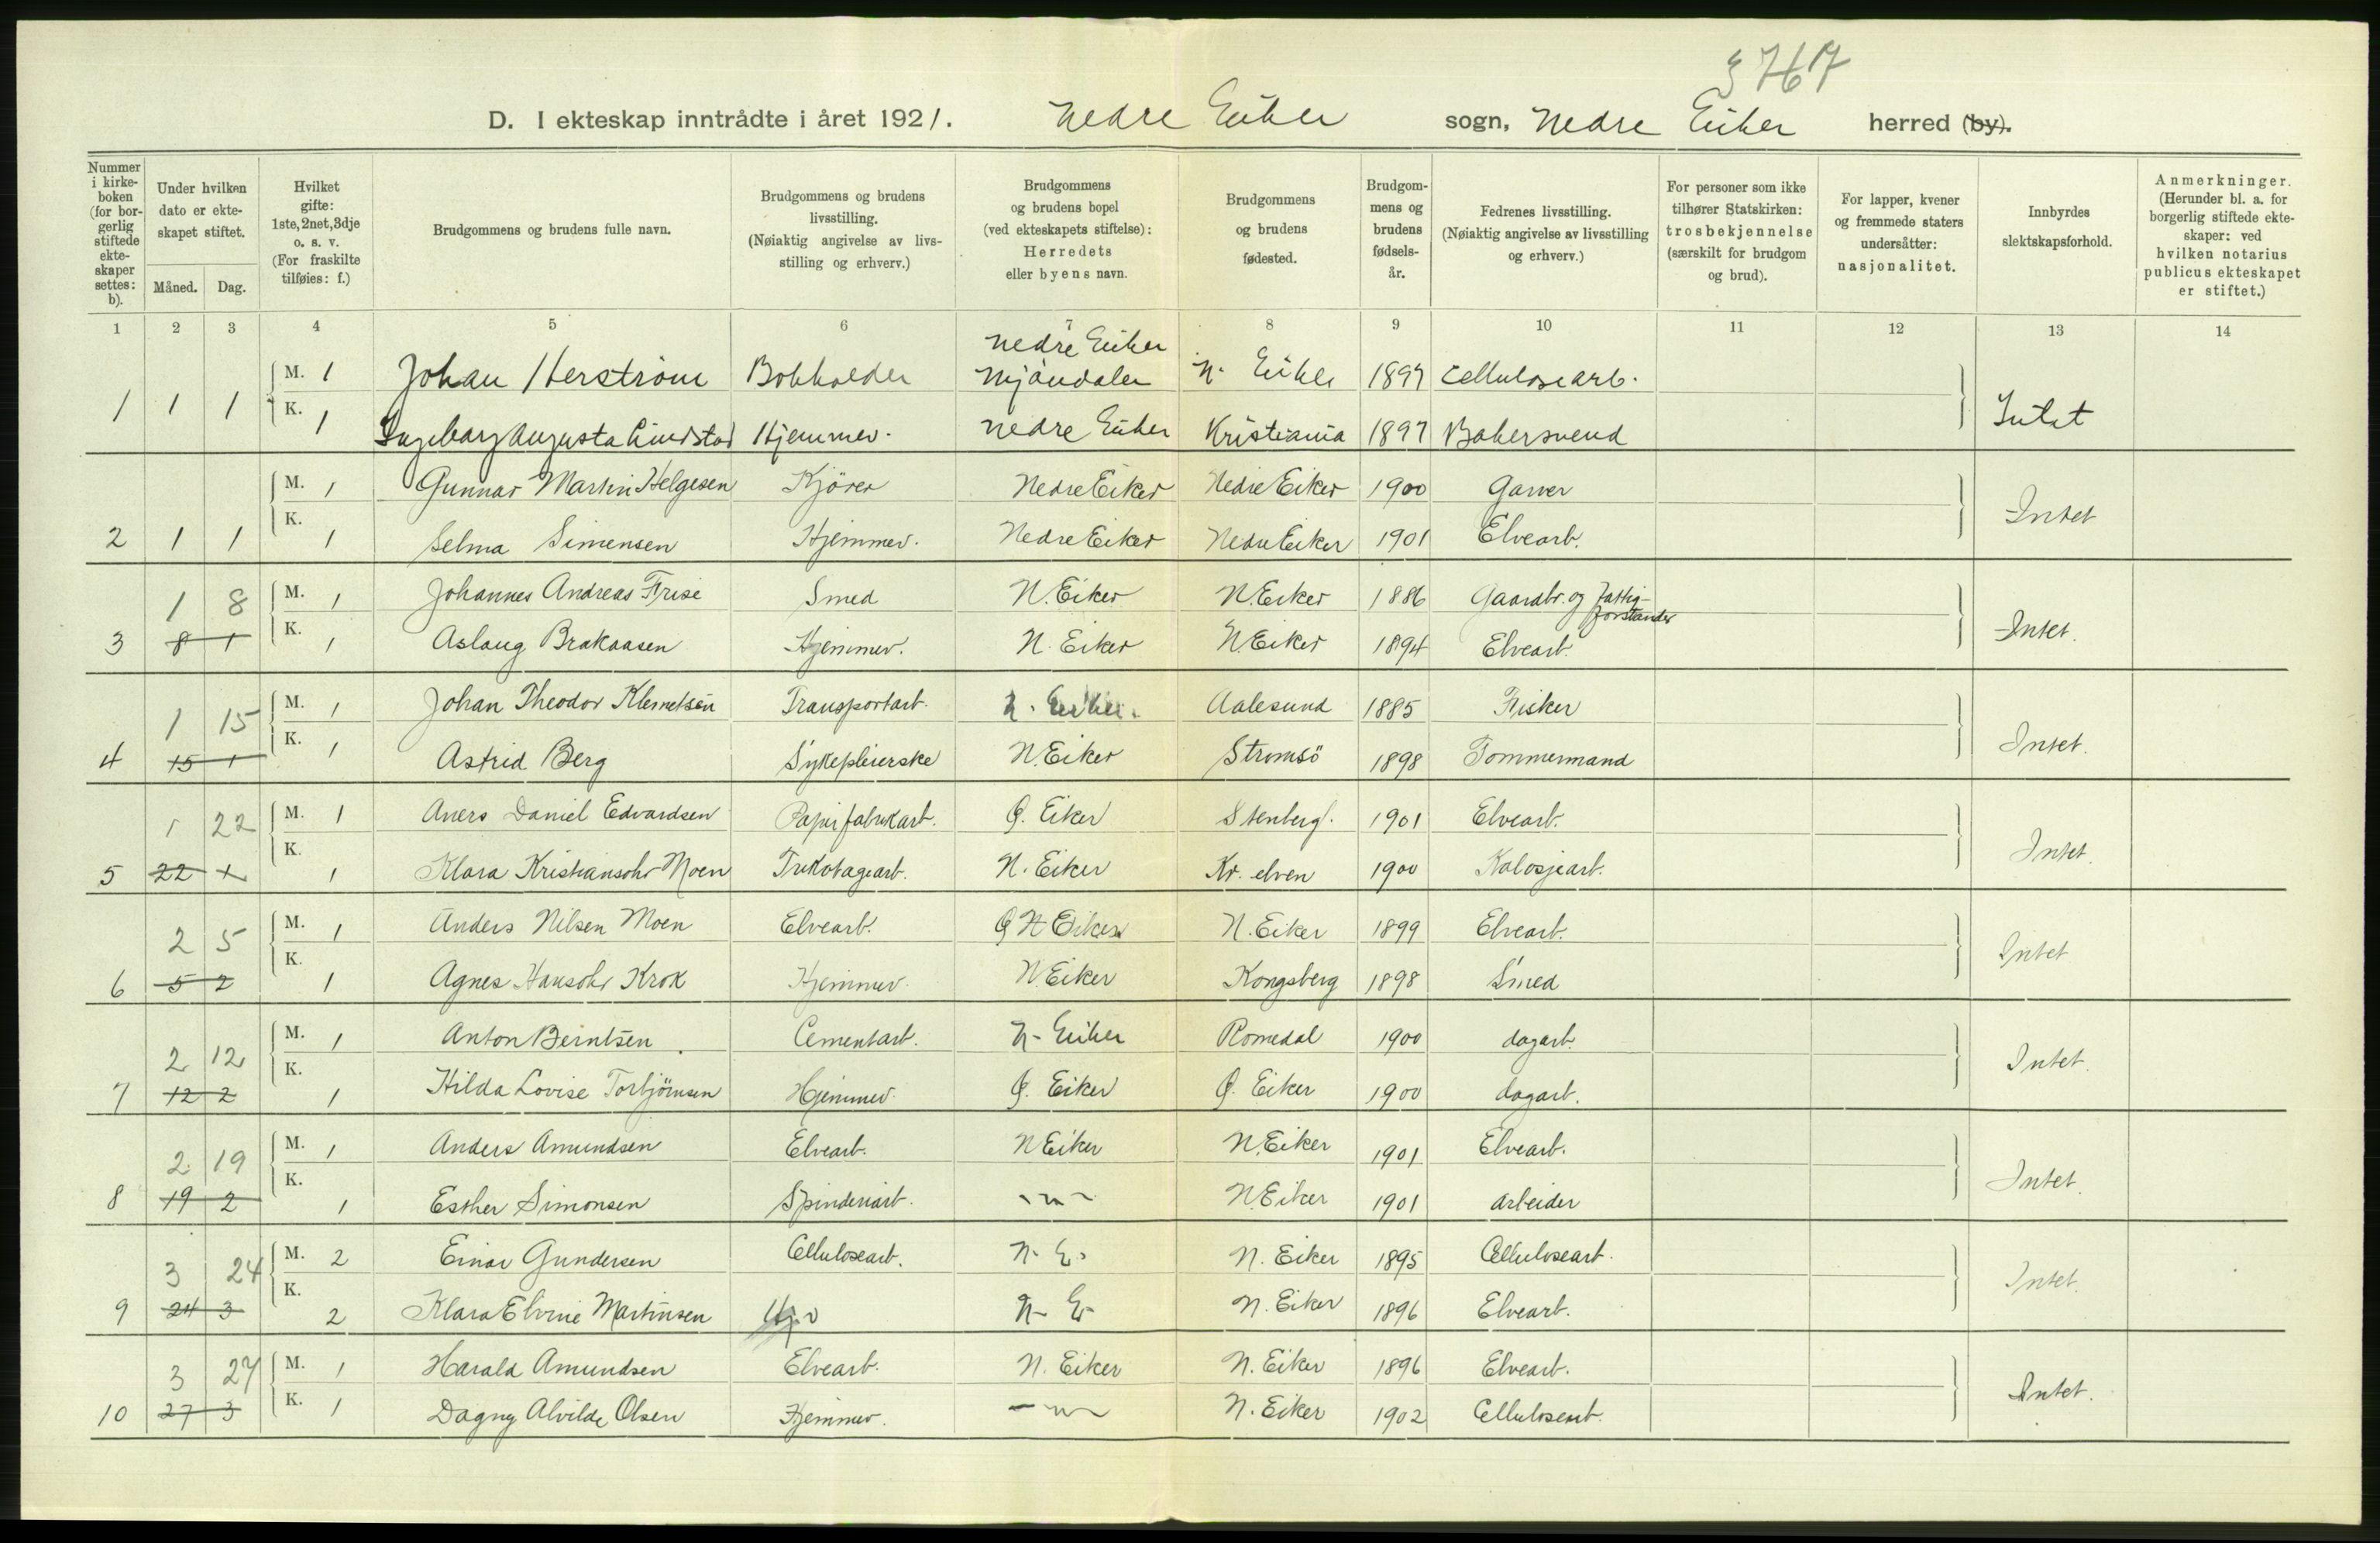 3767
D. I ekteskap inntrådte i året 1921. Nedre Eiker sogn, Nedre Eiker herred (by).
Nummer i kirkeboken (for borgerlig stiftede ekteskaper settes: b).
Under hvilken dato er ekteskapet stiftet.
Måned. Dag.
Hvilket gifte: 1ste, 2net, 3dje o. s. v. (For fraskilte tilføies: f.)
Brudgommens og brudens fulle navn.
Brudgommens og brudens livsstilling. (Nøiaktig angivelse av livsstilling og erhverv.)
Brudgommens og brudens bopel (ved ekteskapets stiftelse): Herredets eller byens navn.
Brudgommens og brudens fødested.
Brudgommens og brudens fødselsår.
Fedrenes livsstilling. (Nøiaktig angivelse av livsstilling og erhverv.)
For personer som ikke tilhører Statskirken: trosbekjennelse (særskilt for brudgom og brud).
For lapper, kvener og fremmede staters undersåtter: nasjonalitet.
Innbyrdes slektskapsforhold.
Anmerkninger. (Herunder bl. a. for borgerlig stiftede ekteskaper: ved hvilken notarius publicus ekteskapet er stiftet.)
1 2 3 4 5 6 7 8 9 10 11 12 13 14
Nedre Eiker
M. 1 Johan Herstrøm Bokholder Mjøndalen N. Eiker 1897 Cellulosearb.
1 1 1 K. 1 Ingeborg Augusta Lindstad Hjemmev. Nedre Eiker Kristiania 1897 Bakersvend Intet
M. 1 Gunnar Martin Helgesen Kjörer Nedre Eiker Nedre Eiker 1900 Garver
2 1 1 K. 1 Selma Simensen Hjemmev. Nedre Eiker Nedre Eiker 1901 Elvearb. Intet
1 8 M. 1 Johannes Andreas Frise Smed N. Eiker N. Eiker 1886 Gaardbr. og Fattigforstander
3 8 1 K. 1 Aslaug Brakaasen Hjemmev. N. Eiker N Eiker 1894 Elvearb. Intet.
1 15 M. 1 Johan Theodor Klemetsen Transportarb. N. Eiker. Aalesund 1885 Fisker
4 15 1 K. 1 Astrid Berg Sykepleierske N. Eiker Strømsö 1898 Tømmermand Intet.
1 22 M. 1 Aners Daniel Edvardsen Papirfabrikarb. Ø. Eiker Stenberg. 1901 Elvearb.
5 22 1 K. 1 Klara Kristiansdtr Moen Trikotagearb. N. Eiker Kr. elven 1900 Kalosjearb. Intet.
2 5 M. 1 Anders Nilsen Moen Elvearb. Ø N Eiker N. Eiker 1899 Elvearb.
6 5 2 K. 1 Agnes Hansdtr Krok Hjemmev. N. Eiker Kongsberg 1898 Smed Intet
2 12 M. 1 Anton Berntsen Cementarb. N- Eiker Romedal 1900 dagarb.
7 12 2 K. 1 Hilda Lovise Torbjörnsen Hjemmev. Ø. Eiker Ø. Eiker 1900 dagarb. Intet.
2 19 M. 1 Anders Amundsen Elvearb. N Eiker N. Eiker 1901 Elvearb.
8 19 2 K. 1 Esther Simonsen Spinderiarb. -"- N. Eiker 1901 arbeider Intet.
3 24 M. 2 Einar Gundersen Cellulosearb. N. E. N. Eiker 1895 Cellulosearb.
9 24 3 K. 2 Klara Elvine Martinsen Hj.v N- E- N. Eiker 1896 Elvearb. Intet.
3 27 M. 1 Harald Amundsen Elvearb. N. Eiker N. Eiker 1896 Elvearb.
10 27 3 K. 1 Dagny Alvilde Olsen Hjemmev. -"- N. Eiker 1902 Cellulosearb. Intet.